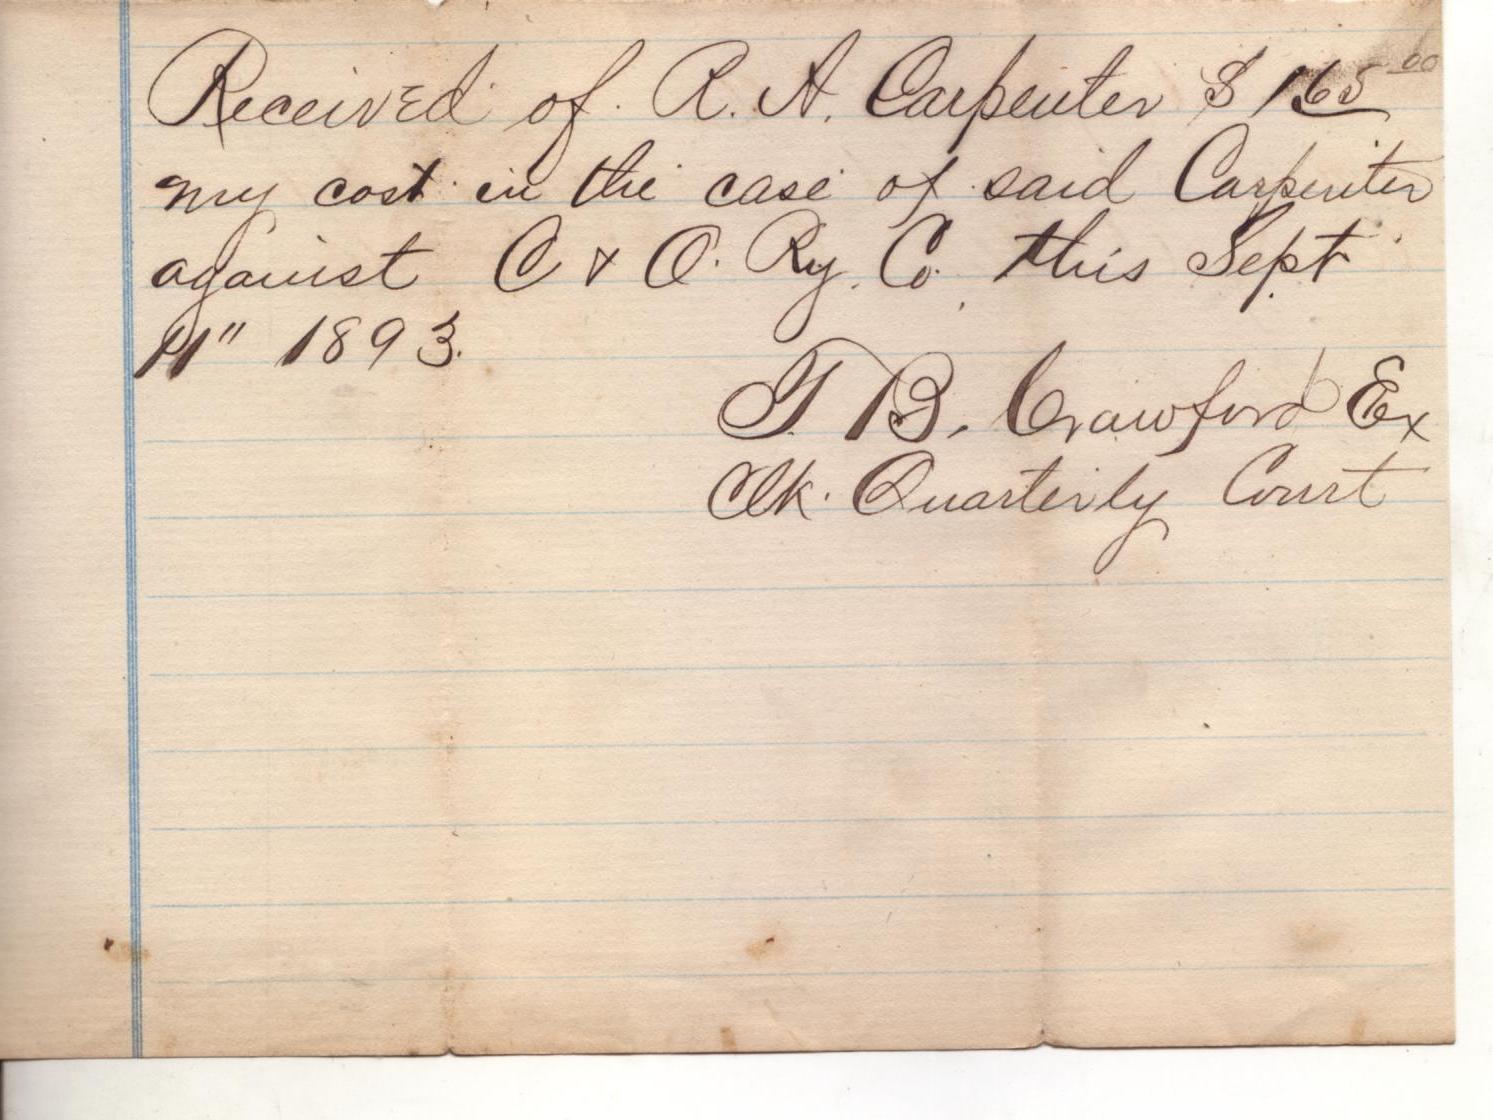 Received of R. A. Carpenter $ 165 00
my cost in the case of said Carpenter
against C & O. Ry. Co. this Sept
11" 1893.
T. B. Crawford Ex
Clk. Quarterly Court